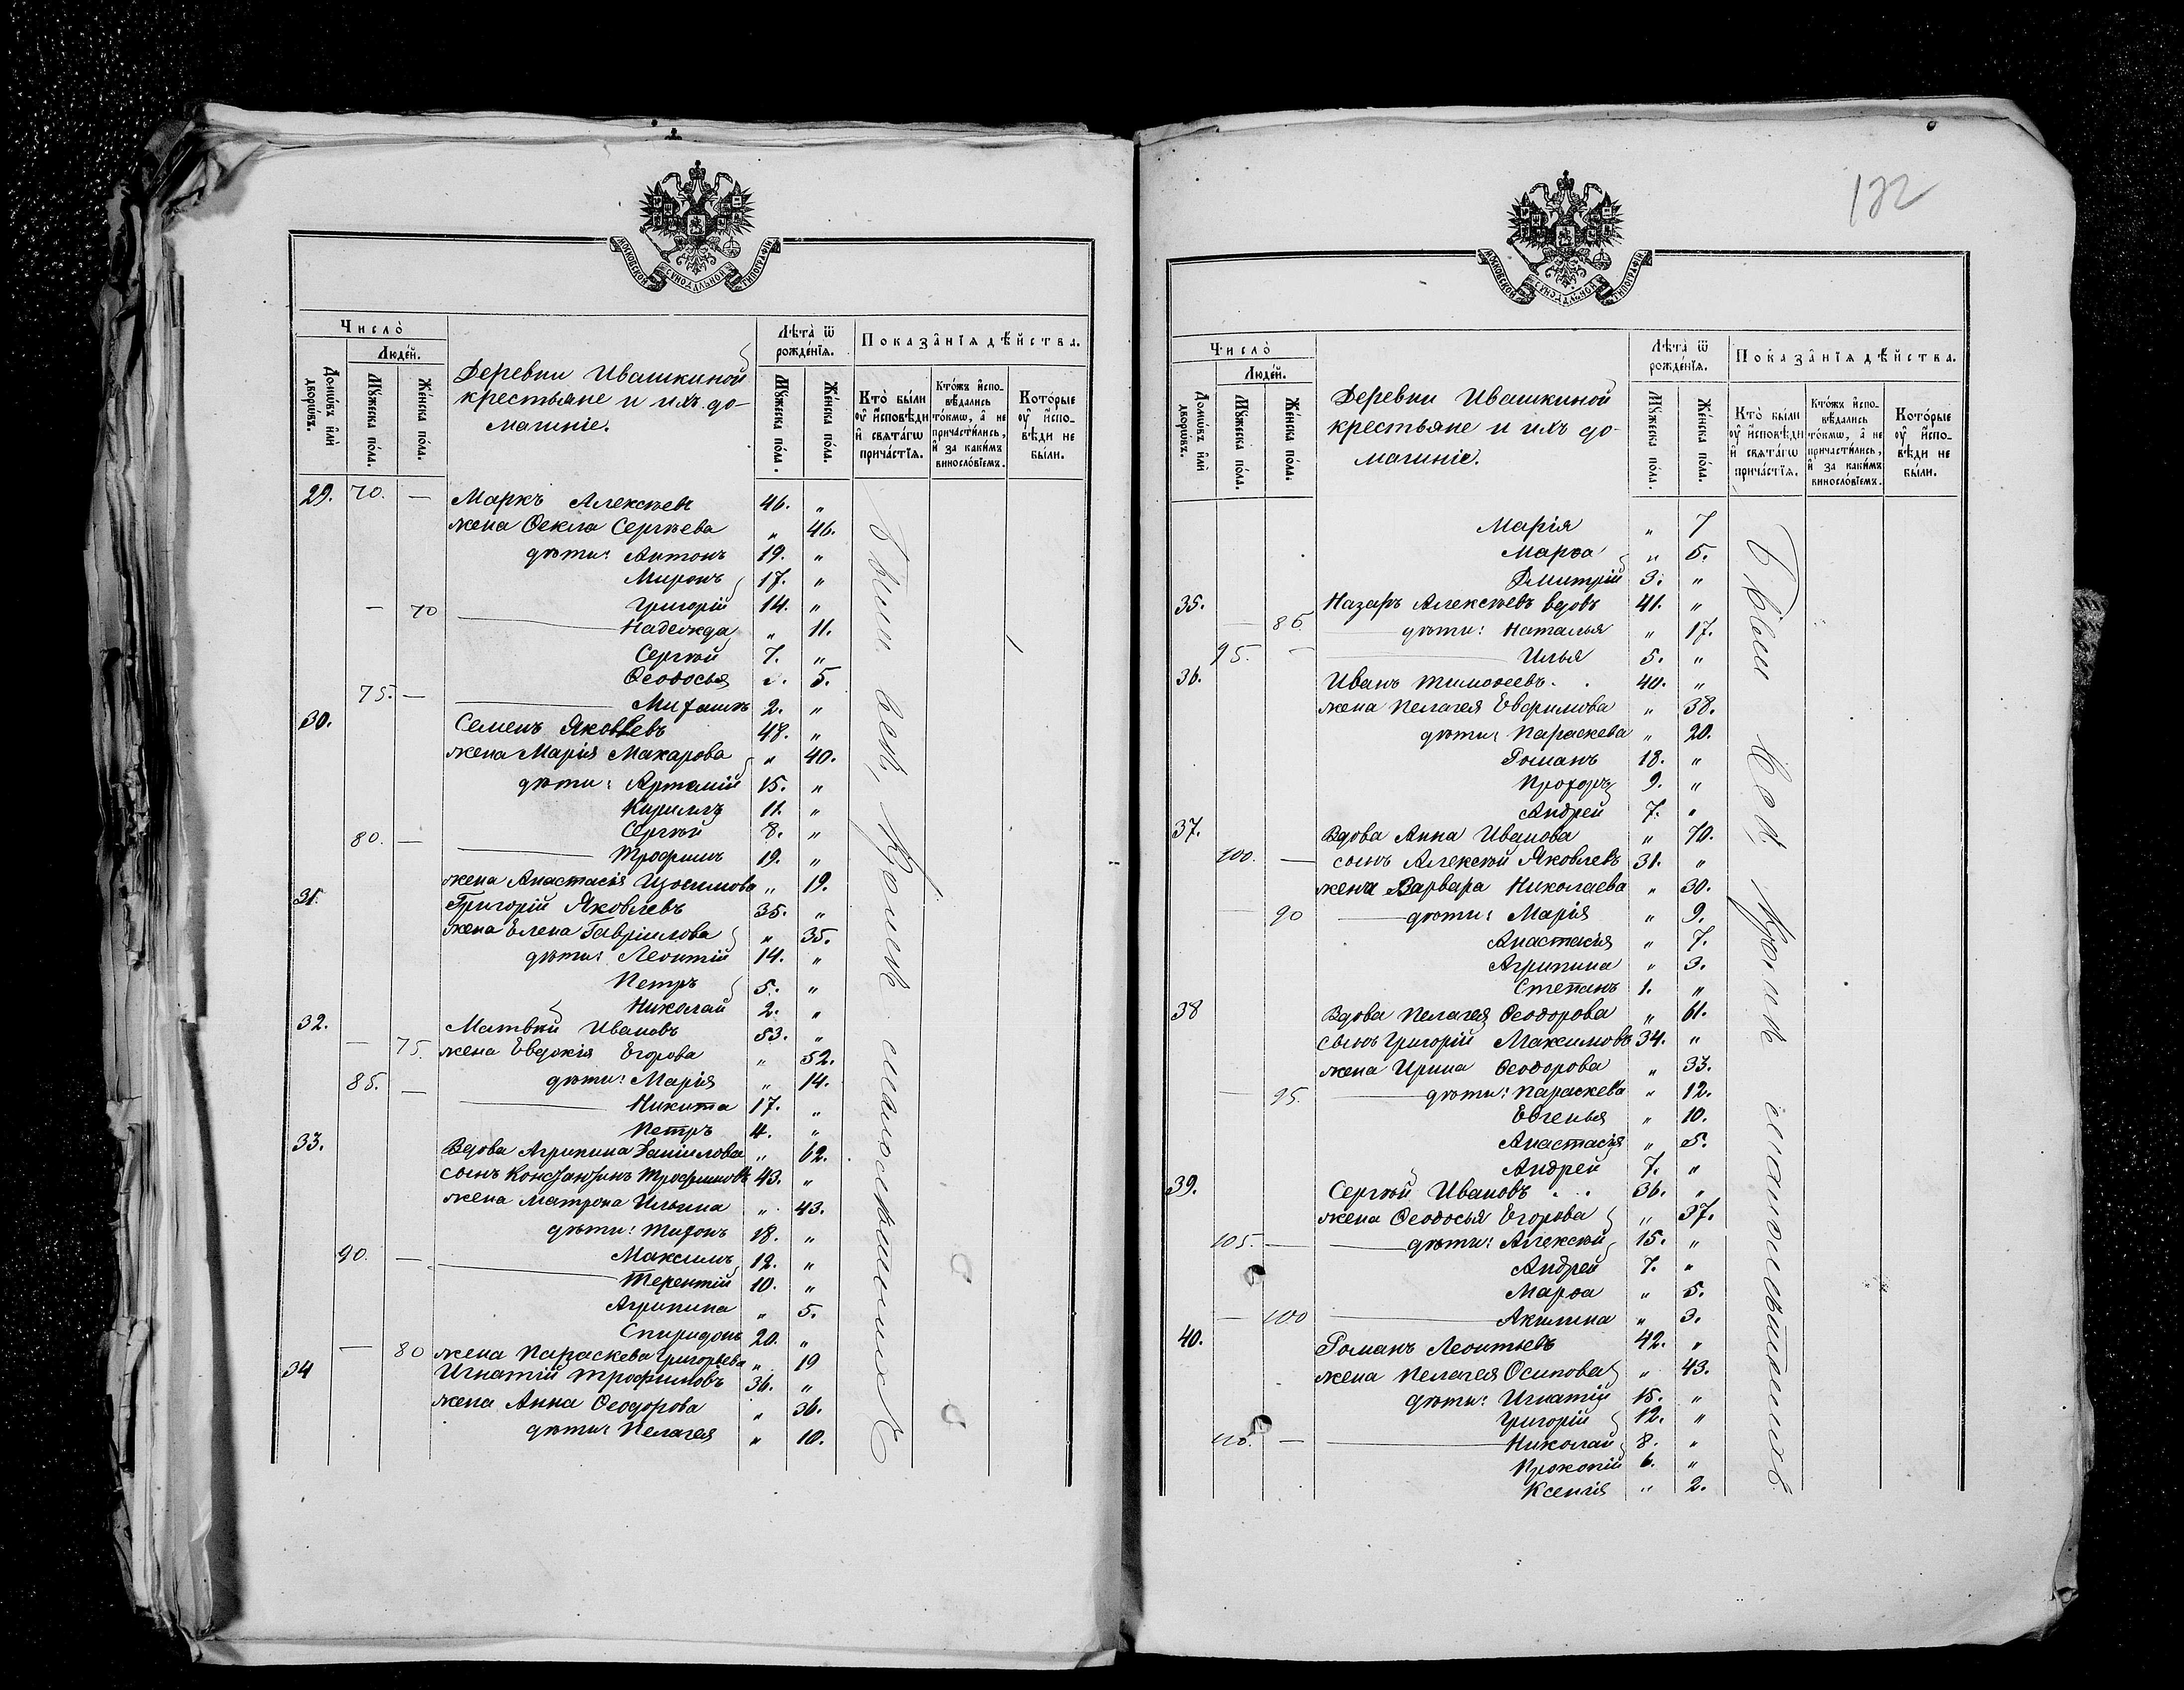 МОСКОВСКОЙ СѴНОДАЛЬНОЙ ТИПОГРАФІИ
Число̀
Люде́й.
Домѡ́въ и҆лѝ дворѡ́въ.
Мꙋ́жеска по́ла.
Же́нска по́ла.
Деревни Ивашкиной
крестьяне и ихъ до-
машніе.
Лѣта̀ ѿ рожде́нїѧ.
Мꙋ́жеска по́ла.
Же́нска по́ла.
Показа̑нїѧ дѣ́йства.
Кто̀ бы́ли оу҆ и҆сповѣ́ди и҆ свѧта́гѡ прича́стїѧ.
Кто́жъ и҆спо- вѣ́дались то́кмѡ, а҆ не причасти́лись, и҆ за каки́мъ винословїемъ.
Кото́рые оу҆ и҆спо- вѣ́ди не бы́ли.
29. 70. — Маркъ Алексѣевъ 46. "
жена Ѳекла Сергѣева " 46.
дѣти: Антонъ 19. "
Миронъ 17. "
— 70 Григорій 14. "
Надежда " 11.
Сергѣй 7. "
Ѳеодосья 5.
75. — Митрофанъ 2. "
30. Семенъ Яковлевъ 48. "
жена Марія Макарова " 40.
дѣти: Артемій 15. "
Кириллъ 11. "
Сергѣй 8. "
80. — Трофимъ 19. "
жена Анастасія Изосимова " 19.
31. Григорій Яковлевъ 35. "
жена Елена Гавріилова " 35.
дѣти: Леонтій 14. "
Петръ 5. "
Николай 2. "
32. Матвѣй Ивановъ 53. "
— 75. жена Евдокія Егорова " 52.
дѣти: Марія " 14.
85. — Никита 17. "
Петръ 4. "
33. Вдова Агрипина Даніилова " 62.
сынъ Константинъ Трофимовъ 43. "
жена Матрона Ильина " 43.
дѣти: Тихонъ 18. "
90. — Максимъ 12. "
Терентій 10. "
Агрипина " 5.
Спиридонъ 20. "
— 80 жена Параскева Григорьева " 19
34 Игнатій Трофимовъ 36. "
жена Анна Ѳеодорова " 36.
дѣти: Пелагея " 10.
Были всѣ, кромѣ малолѣтнихъ
122
МОСКОВСКОЙ СѴНОДАЛЬНОЙ ТИПОГРАФІИ
Число̀
Люде́й.
Домѡ́въ и҆лѝ дворѡ́въ.
Мꙋ́жеска по́ла.
Же́нска по́ла.
Деревни Ивашкиной
крестьяне и ихъ до-
машніе.
Лѣта̀ ѿ рожде́нїѧ.
Мꙋ́жеска по́ла.
Же́нска по́ла.
Показа̑нїѧ дѣ́йства.
Кто̀ бы́ли оу҆ и҆сповѣ́ди и҆ свѧта́гѡ прича́стїѧ.
Кто́жъ и҆спо- вѣ́дались то́кмѡ, а҆ не причасти́лись, и҆ за каки́мъ винословїемъ.
Кото́рые оу҆ и҆спо- вѣ́ди не бы́ли.
Марія " 7
Марѳа " 5.
Дмитрій 3. "
35. Назаръ Алексѣевъ вдовъ 41. "
— 85. дѣти: Наталья " 17.
95. — Илья 5. "
36. Иванъ Тимоѳеевъ 40. "
жена Пелагея Евфимова " 38.
дѣти: Параскева " 20.
Романъ 18. "
Прохоръ 9. "
Андрей 7. "
37. Вдова Анна Иванова " 70.
100. — сынъ Алексѣй Яковлевъ 31. "
жена Варвара Николаева " 30.
— 90 дѣти: Марія " 9.
Анастасія " 7.
Агрипина " 3.
Степанъ 1. "
38 Вдова Пелагея Ѳеодорова " 61.
сынъ Григорій Максимовъ 34. "
жена Ирина Ѳеодорова " 33.
— 95. дѣти: Параскева " 12.
Евгенья " 10.
Анастасія " 5.
Андрей 7. "
39. Сергѣй Ивановъ 36. "
жена Ѳеодосья Егорова " 37.
105. — дѣти: Алексѣй 15. "
Андрей 7. "
Марѳа " 5.
— 100 Акилина " 3.
40. Романъ Леонтьевъ 42. "
жена Пелагея Осипова " 43.
дѣти: Игнатій 15. "
Григорій 12. "
110. — Николай 8. "
Прокопій 6. "
Ксенія " 2.
Были всѣ, кромѣ малолѣтнихъ